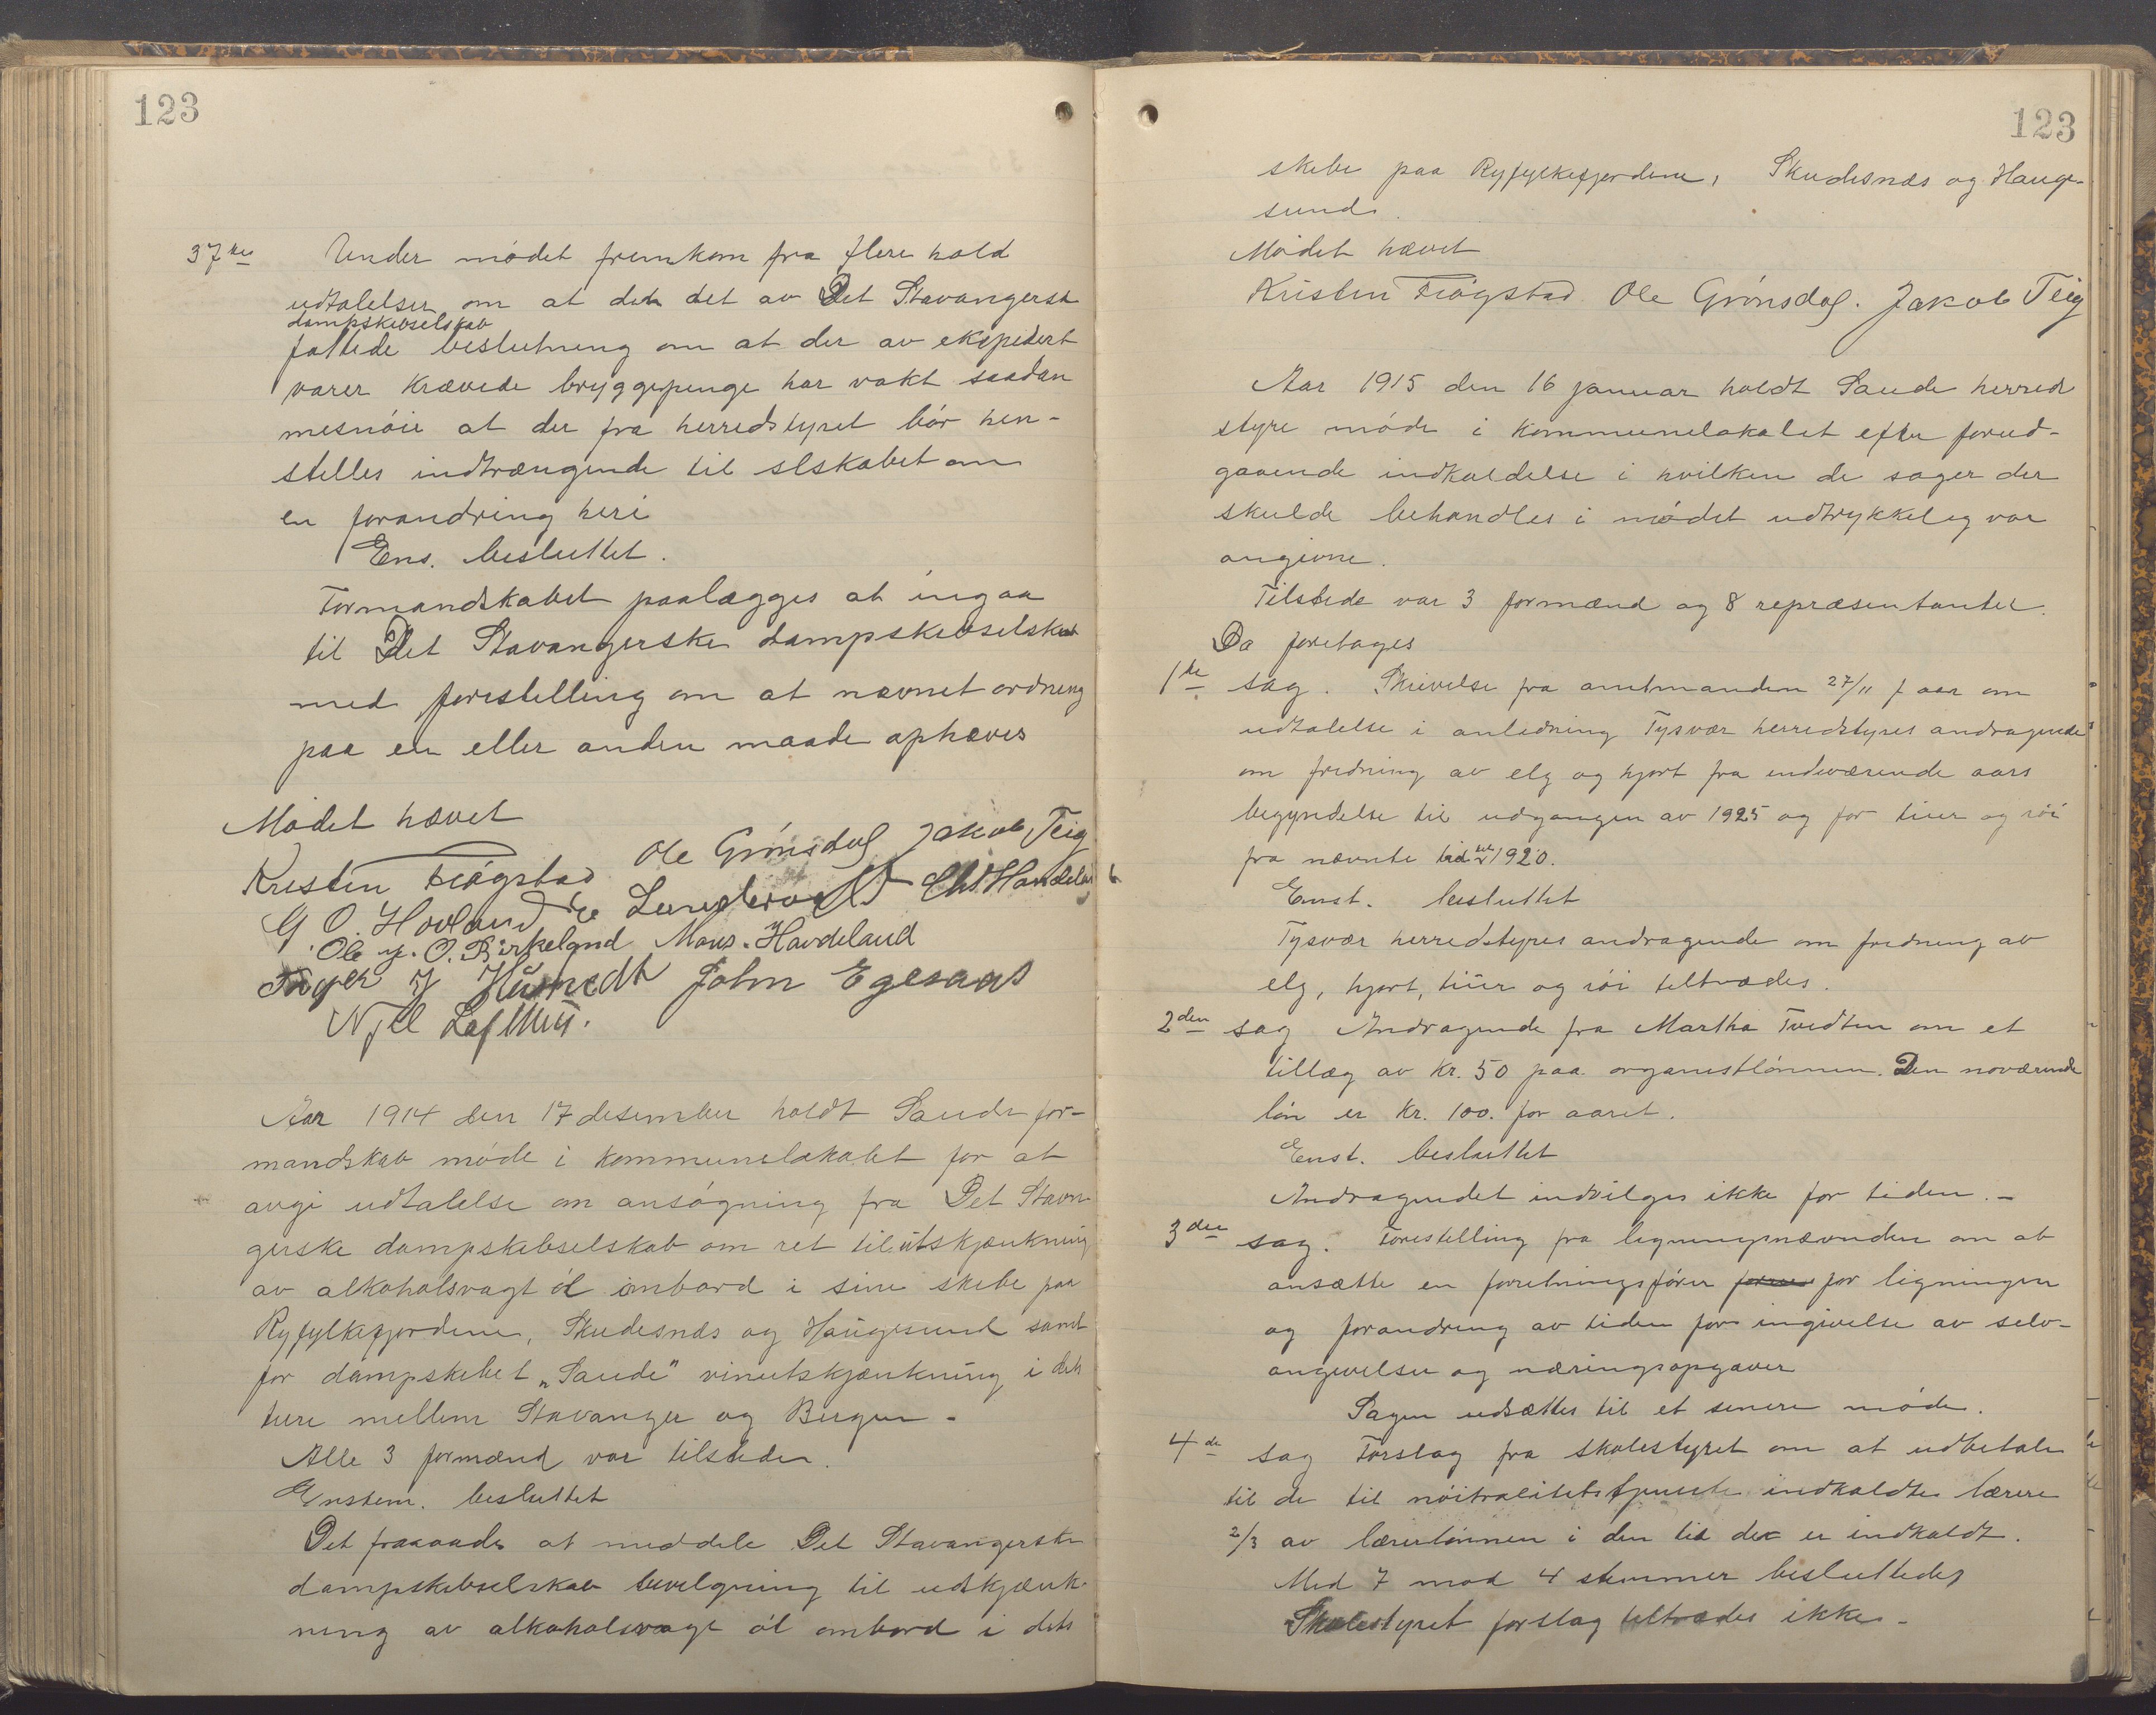 123
37te Under mødet fremkom fra flere hold
udtalelser om at det det av Det Stavangerske
dampskibselskab
fattede beslutning om at der av ekspedert
varer krævede bryggepenge har vakt saadan
mesnøie at der fra herredstyret bør hen-
stilles indtrængende til slskabet om
en forandring heri
Ens. besluttet.
Formandskabet paalægges at ingaa
til Det Stavangerske dampskibselskab
med forestilling om at nævnet ordning
paa en eller anden maade ophæves
Mødet hævet
Kristen Fløgstad Ole Grønsdal Jakob Teig
G. O. Hovland
Ole J. O. Birkeland Mons. Havdeland
John Egesaas
Aar 1914 den 17 desember holdt Saude for-
mandskab møde i kommunelokalet for at
avgi udtalelse om ansøgning fra Det Stavn-
gerske dampskibselskab om ret til utskjænkning
av alkoholsvagt øl ombord i sine skibe paa
Ryfylkefjordene, Skudesnæs og Haugesund samt
for dampskibet „Saude" vinutskjænkning i dets
ture mellem Stavanger og Bergen -
Alle 3 formænd var tilstede.
Enstem. besluttet
Det fraraades at meddele Det Stavangerske
dampskibselskab bevilgning til udskjænk-
ning av alkoholsvagt øl ombord i dets
123
skibe paa Ryfylkefjordene, Skudesnæs og Hauge-
sund.
Mødet hævet
Kristen Fløgstad Ole Grønsdal. Jakob Teig
Aar 1915 den 16 januar holdt Saude herred
styre møde i kommunelokalet efter forud-
gaaende indkaldelse i hvilken de sager der
skulde behandles i mødet udtrykkelig var
angivne.
Tilstede var 3 formænd og 8 repræsentanter.
Da foretages
1ste sag. Skrivelse fra amtmanden 27/11 f aar om
udtalelse i anledning Tysvær herredstyres andragende
om fredning av elg og hjort fra indeværende aars
begyndelse til udgangen av 1925 og for tiur og røi
fra nævnte tid til 1920.
Enst. besluttet
Tysvær herredstyres andragende om fredning av
elg, hjort, tiur og røi tiltrædes.
2den sag Andragende fra Martha Tvedten om et
tillæg av kr. 50 paa organistlønnen. Den noværende
løn er kr. 100. for aaret.
Enst. besluttet
Andragendet indvilges ikke for tiden. -
3die sag. Forestilling fra ligningsnævnden om at
ansætte en forretningsfører for ligningen
og forandring av tiden for ingivelse av selv-
angivelser og næringsopgaver
Sagen udsættes til et senere møde.
4de sag Forslag fra skolestyret om at udbetale
til de til nøitralitetstjeneste indkaldte lærere
2/3 av lærerlønnen i den tid der er indkaldt.
Med 7 mod 4 stemmer besluttedes
Skolestyret forslag tiltrædes ikke -